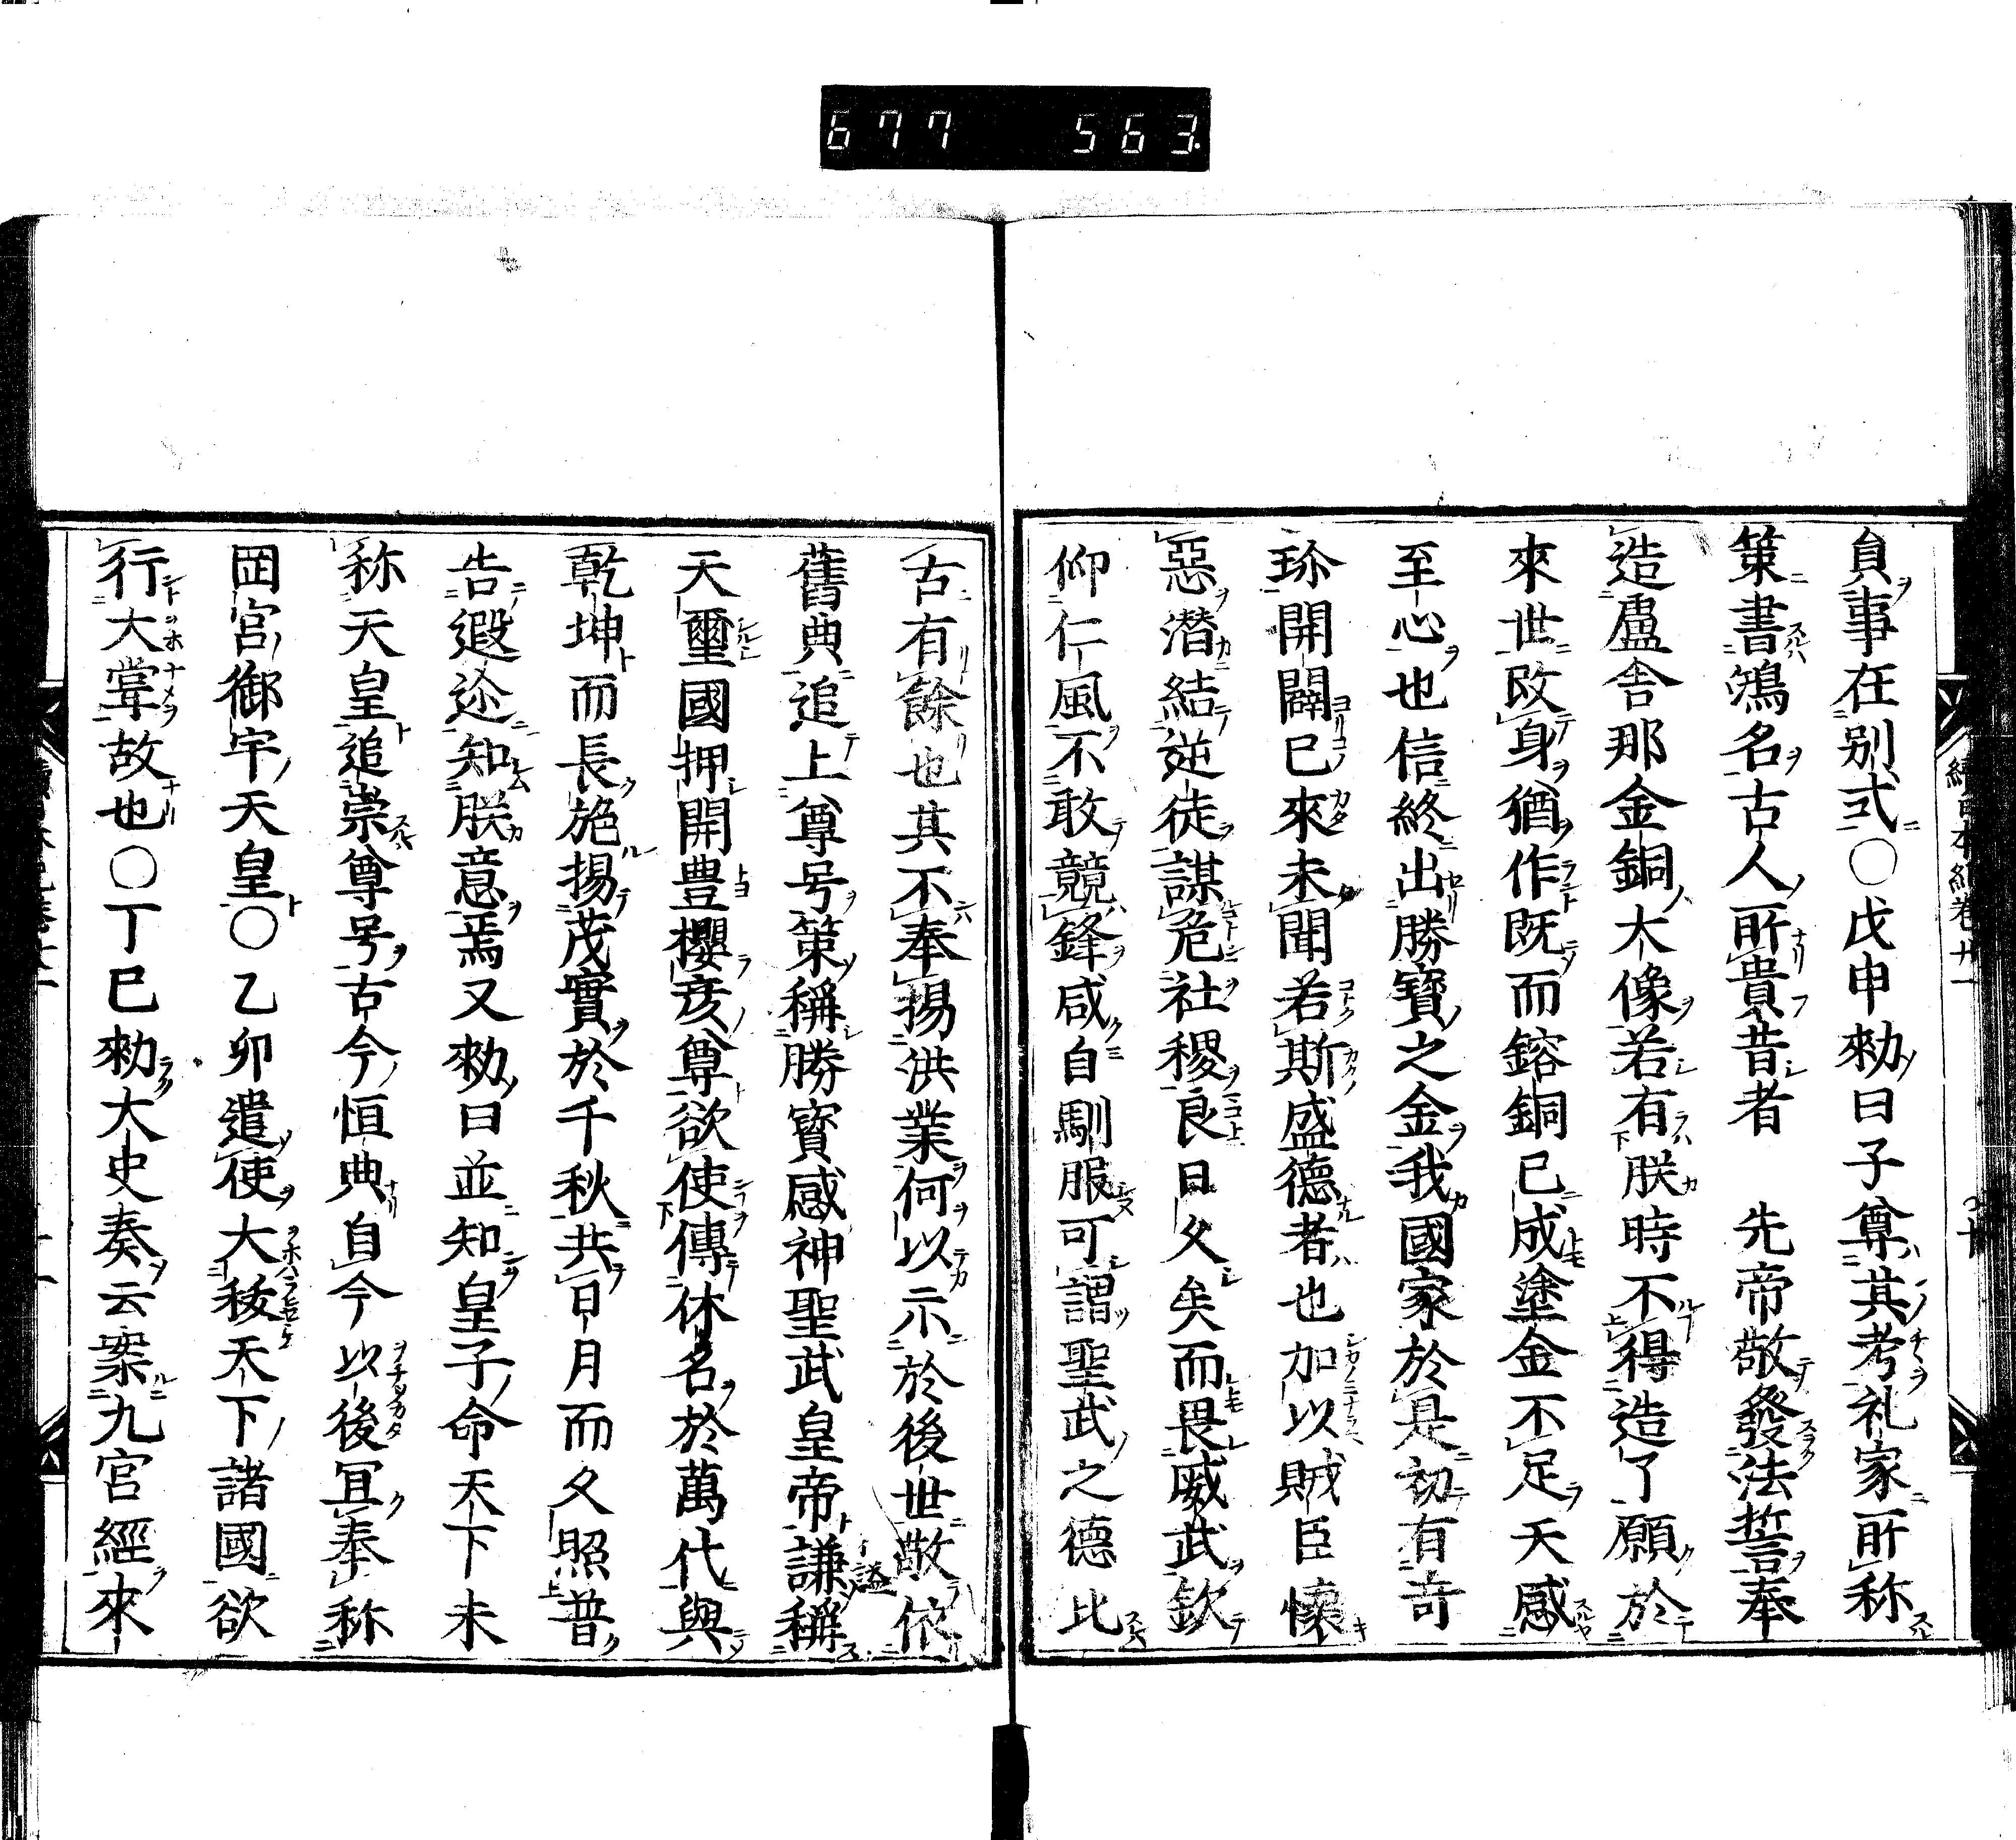 677 563.
續日本紀卷廿一
員事在別式○戊申勅曰子尊其考礼家所称
策書鴻名古人所貴昔者 先帝敬發法誓奉
造盧舎那金銅大像若有朕時不得造了願於
來世改身猶作既而鎔銅已成塗金不足天感
至心也信終出勝寶之金我國家於是初有竒
珎開闢已來未聞若斯盛德者也加以賊臣懷
惡潜結逆徒謀危社稷良日久矣而畏威武欽
仰仁風不敢競鋒咸自馴服可謂聖武之德比
古有餘也其不奉揚洪業何以示於後世敬依
舊典追上尊号策稱勝寳感神聖武皇帝謙稱
天璽國押開豊櫻彦尊欲使傳休名於萬代與
乾坤而長施揚茂實於千秋共日月而久照普
告遐迩知朕意焉又勅曰並知皇子命天下未
称天皇追崇尊号古今恒典自今以後冝奉称
岡宮御宇天皇○乙卯遣使大祓天下諸國欲
行大甞故也○丁巳勅大史奏云案九宮經來